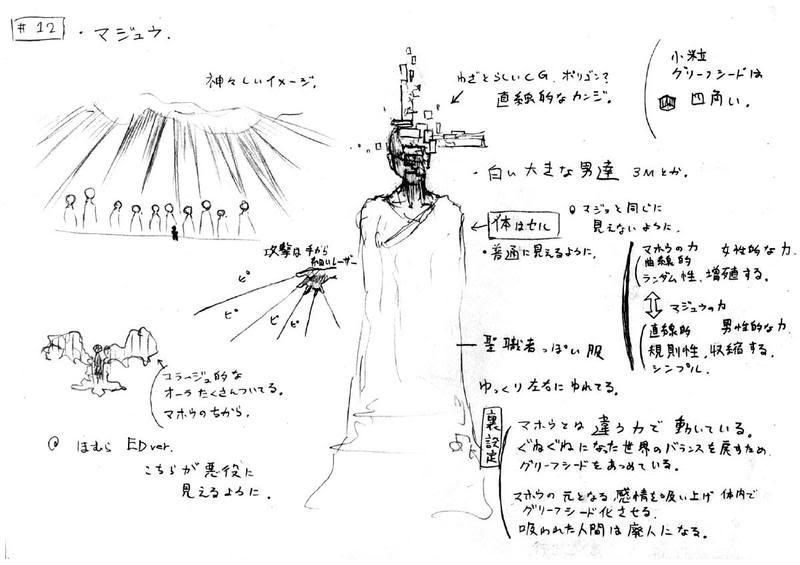 #12
・マジュウ.
神々しいイメージ。
わざとらしいCG. ポリゴン?
直線的なカンジ。
小粒
グリーフシードは
四角い。
・白い大きな男達 3Mとか.
体はセル
マジョと同じに
見えないように.
・普通に見えるように。
攻撃は手から
細いレーザー
ピ
ピ
ピ
ピ
マホウの力 女性的な力
曲線的
ランダム性、増殖する。
マジュウの力
直線的 男性的な力
規則性、収縮する。
シンプル.
聖職者っぽい服
ゆっくり左右にゆれてる。
コラージュ的な
オーラたくさんついてる。
マホウのちから.
ほむら EDver.
こちらが悪役に
見えるように.
裏設定
マホウとは違う力で動いている。
ぐねぐねになった世界のバランスを戻すため
グリーフシードをあつめている。
マホウの元となる感情を吸い上げ体内で
グリーフシード化させる.
吸われた人間は廃人になる。